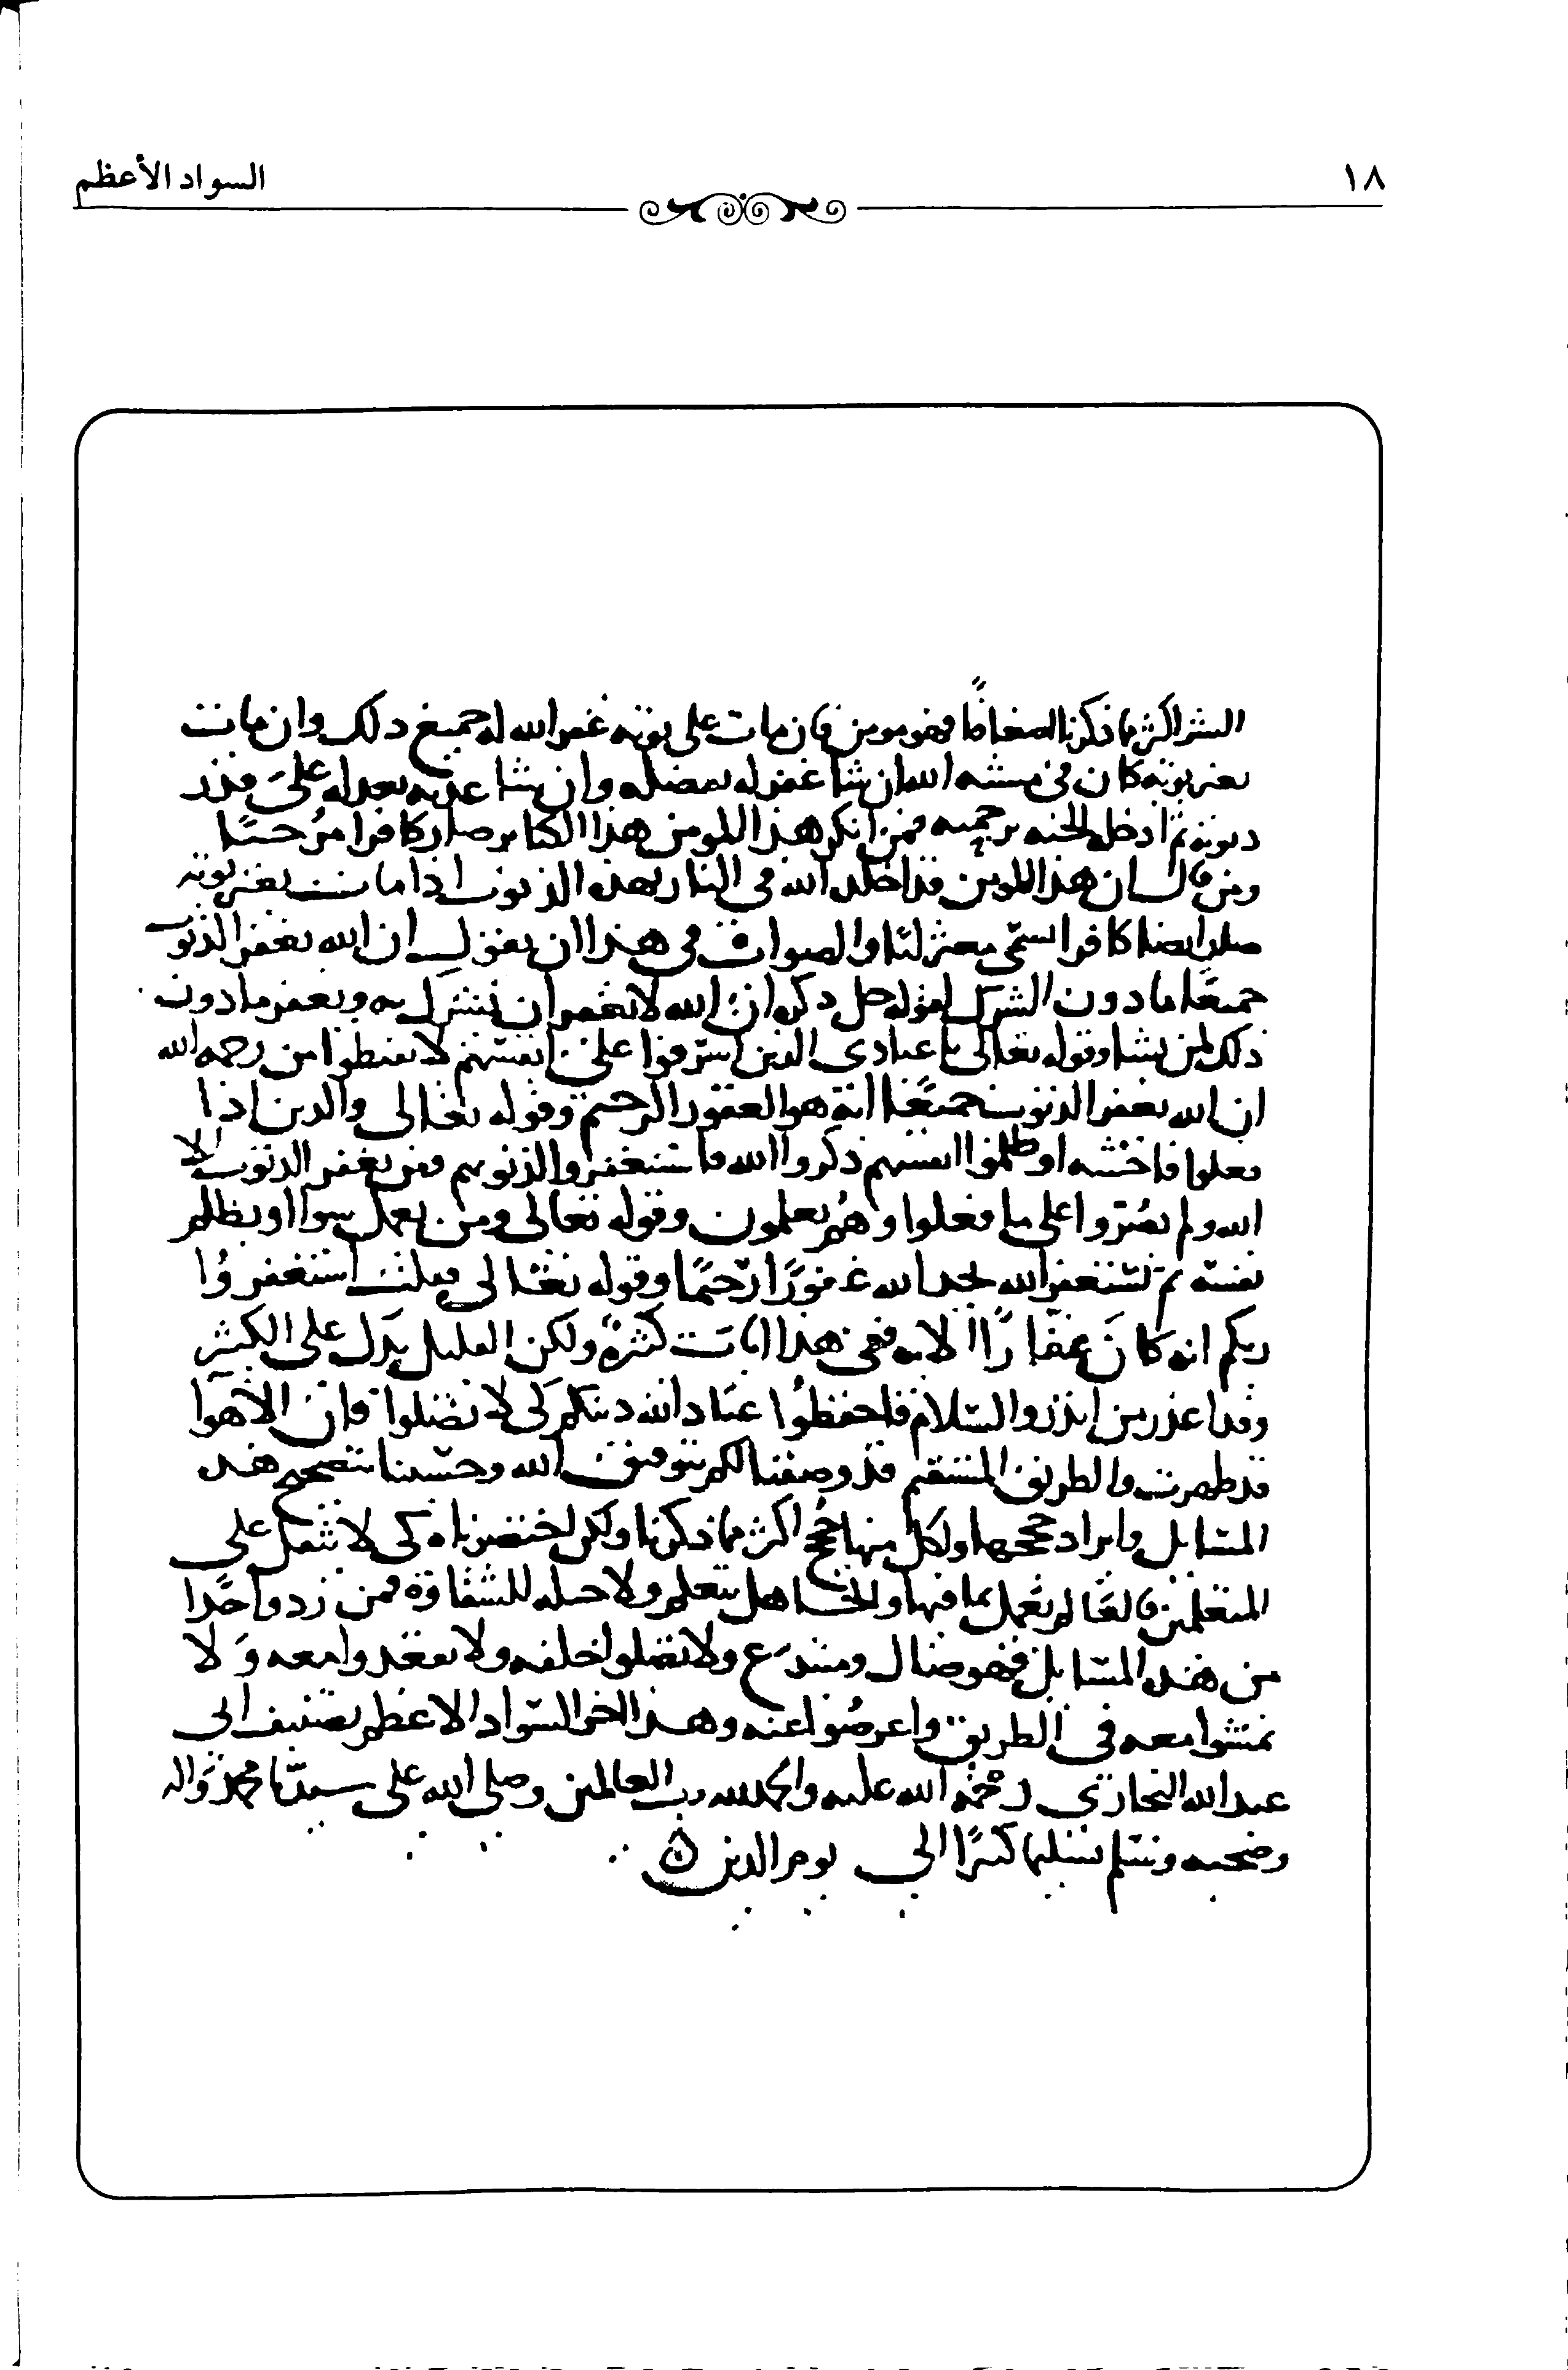 ١٨
السواد الأعظم
الشر اكثر مما ذكرنا فهو مومن فان مات على توبته غفر الله له جميع ذلك وان مات
بغير توبته كان في مشيئه الله ان شا غفر له بفضله وان شا عذبه بعدله على قدر
ذنوبه ثم ادخل الجنه برحمته فمن انكر هذا المومن هذا الكتاب صار كافرا
ومن قال ان هذا المومن قد اخلده الله في النار بهذه الذنوب اذا مات بغير توبته
صار ايضا كافرا يسمى معتزليا والصواب في هذا ان يقول ان الله يغفر الذنوب
جميعا ما دون الشرك لقوله جل ذكره ان الله لا يغفر ان يشرك به ويغفر ما دون
ذلك لمن يشا وقوله تعالى يا عبادي الذين اسرفوا على انفسهم لا تقنطوا من رحمه الله
ان الله يغفر الذنوب جميعا انه هو الغفور الرحيم وقوله تعالى والذين اذا
فعلوا فاحشه او ظلموا انفسهم ذكروا الله فاستغفروا لذنوبهم ومن يغفر الذنوب الا
الله ولم يصروا على ما فعلوا وهم يعلمون وقوله تعالى ومن يعمل سوا او يظلم
نفسه ثم يستغفر الله يجد الله غفورًا رحيمًا وقوله تعالى فقلت استغفروا
ربكم انه كان غفارًا الايه ففي هذا ايات كثيرة ولكن القليل يدل على الكثير
وقد اعذر من انذر والسلام فاحفظوا عباد الله دينكم كي لا تضلوا فان الاهوا
قد ظهرت والطريق المستقيم قد وصفنا لكم بتوفيق الله وحسبنا بتصحيح هذه
المسايل وايراد حججها ولكل منها حجج اكثر مما ذكرنا ولكن اختصرناه كي لا تثقل على
المتعلمين فالعالم يعمل بما فيها والجاهل يتعلم ولا حيله للشقاوة فمن رد واحدا
من هذه المسايل فهو ضال ومبتدع ولا تصلوا خلفه ولا تقعدوا معه ولا
تمشوا معه في الطريق واعرضوا عنه وهذا اخر السواد الاعظم تصنيف ابى
عبد الله البخاري رحمه الله عليه والحمد لله رب العالمين وصلى الله على سيدنا محمد واله
وصحبه وسلم تسليما كثيرًا الى يوم الدين